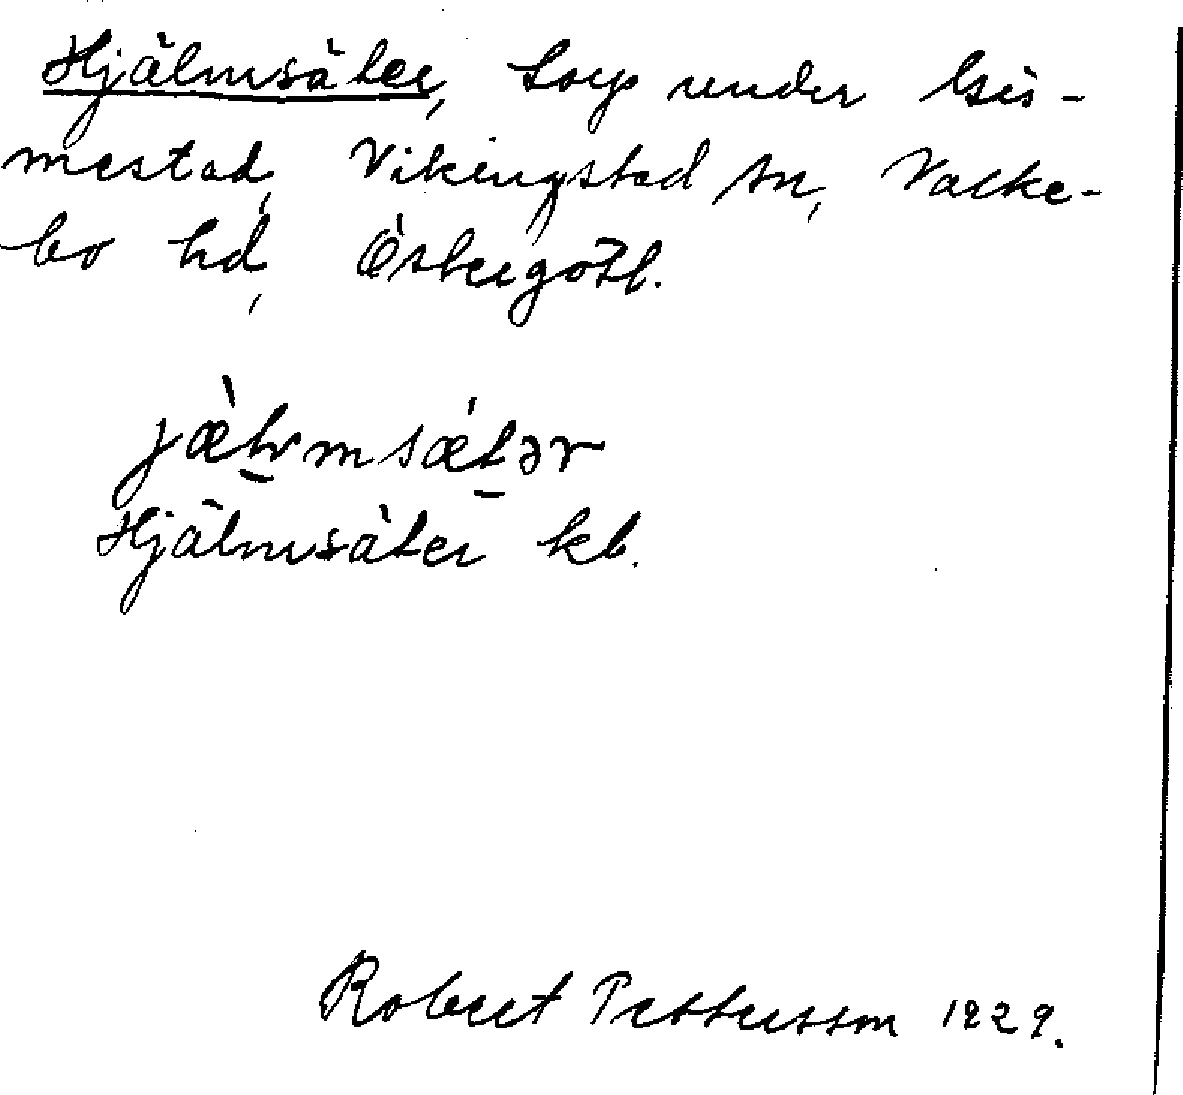 Hjälmsäter, torp under Gis-
mestad, Vikingstad sn, Valke-
bo hd, Östergötl.
Hjälmsäter kb.
Robert Pettersson 1929.